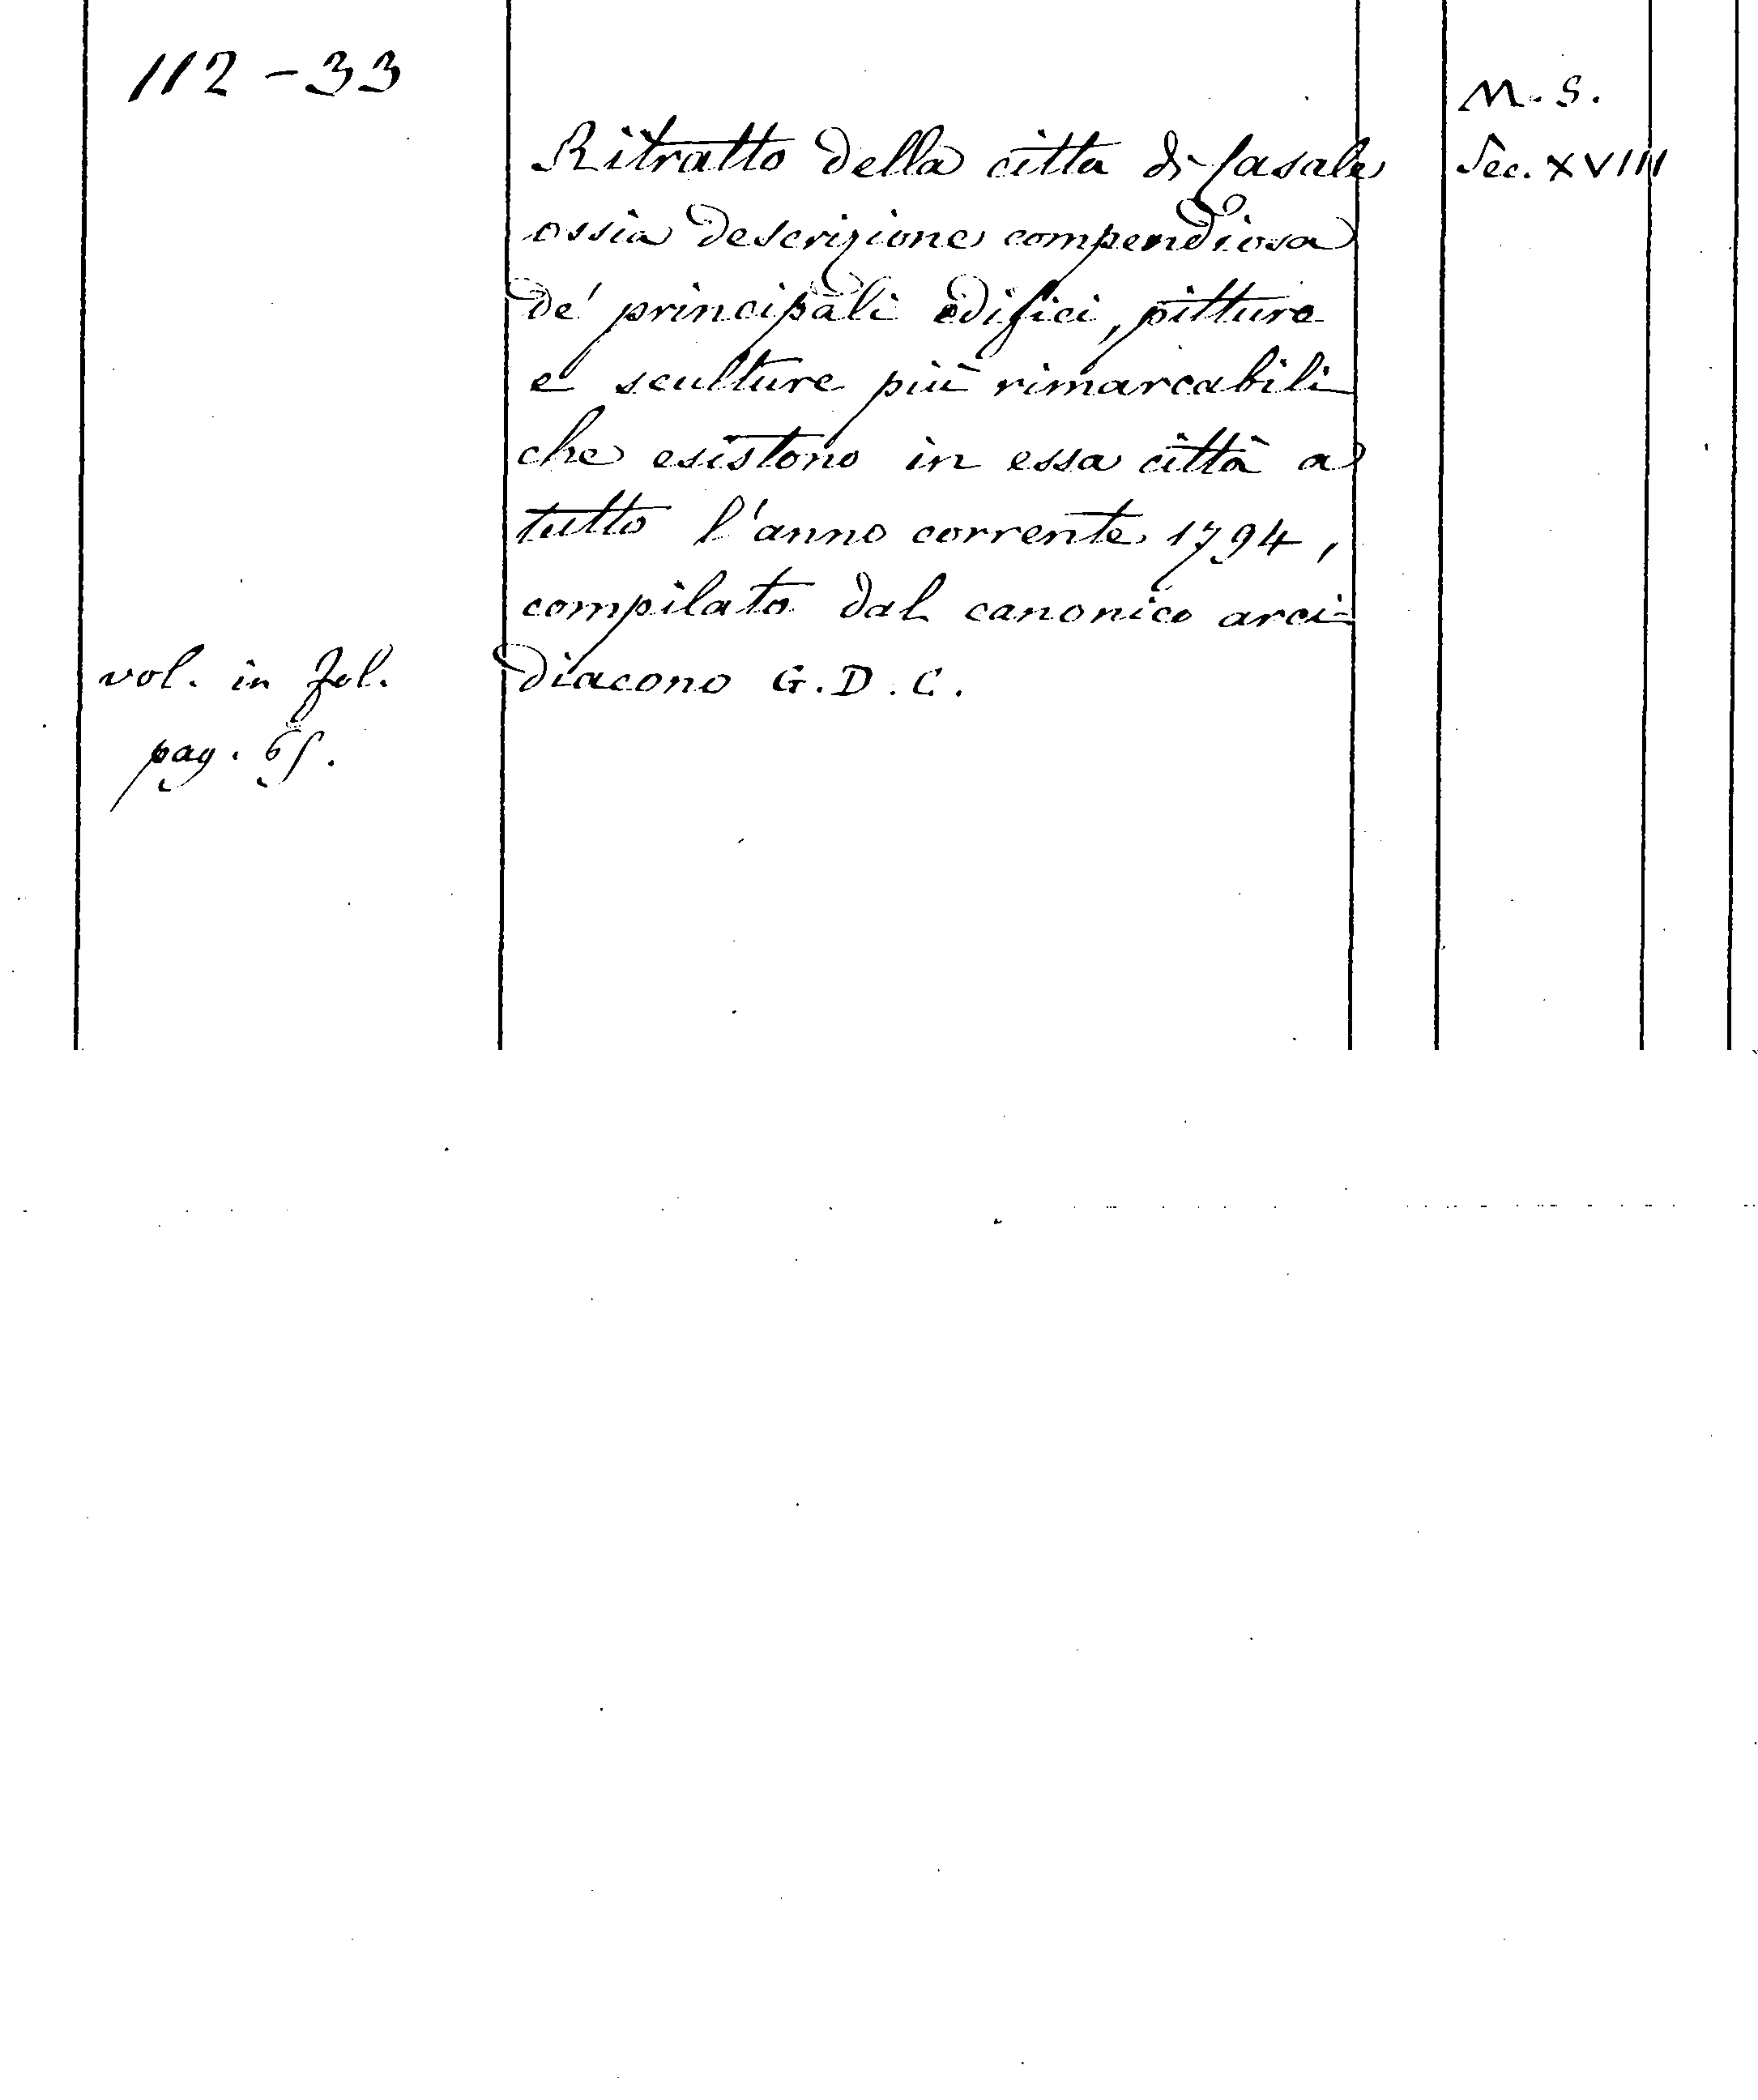 112 - 33
M. S.
Ritratto della città di Casale
Sec. XVIII
ossia descrizione compendiosa
de' principali edifici, pitture
e sculture più rimarcabili
che esistono in essa città a
tutto l'anno corrente 1794,
compilato dal canonico arci-
vol. in fol.
diacono G. D. C.
pag.